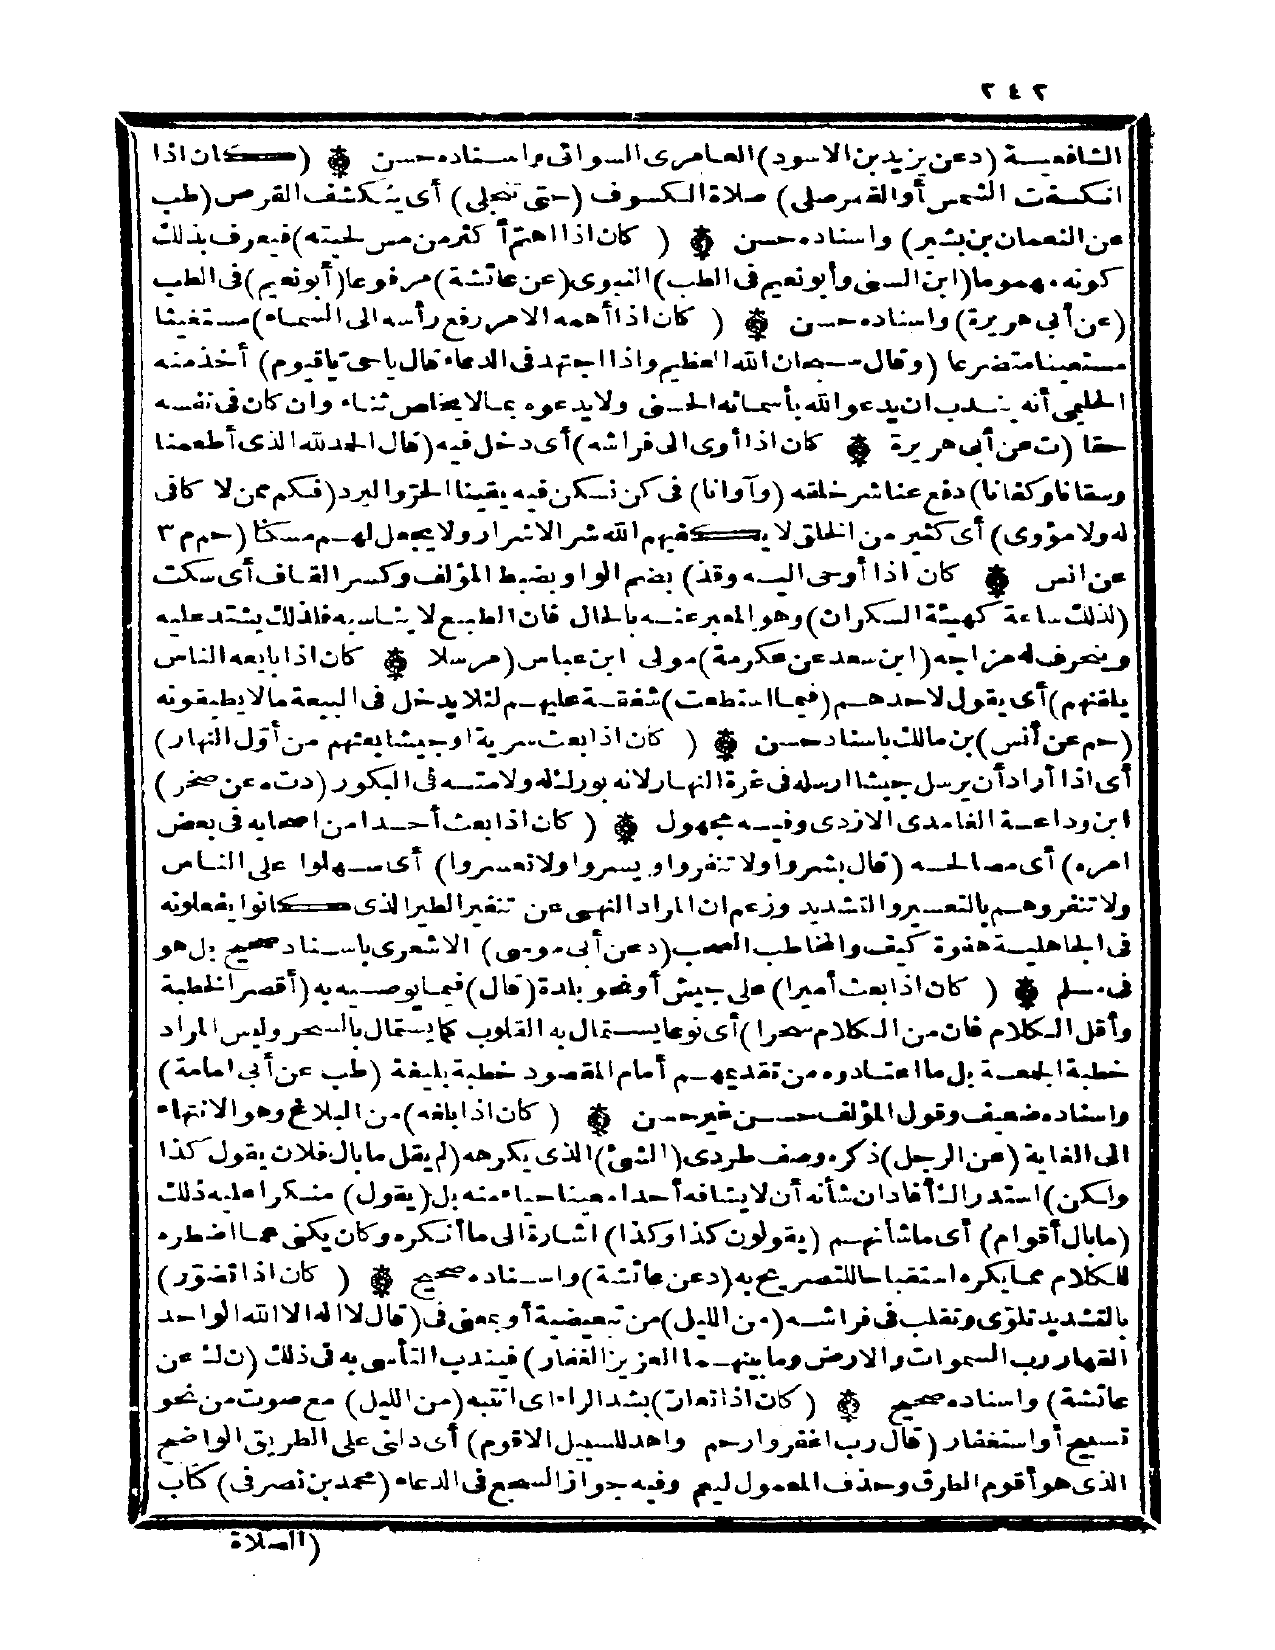 ٢٤٢
الشافعية (د عن يزيد بن الاسود) العامرى السوائى واسناده حسن ۞ (كان اذا
انكسفت الشمس أو القمر صلى) صلاة الكسوف (حتى تنجلى) أى ينكشف القرص (طب
عن النعمان بن بشير) واسناده حسن ۞ (كان اذا اهتم أكثر من مس لحيته) فيعرف بذلك
كونه مهموما (ابن السنى وأبو نعيم فى الطب) النبوى (عن عائشة) مرفوعا (أبو نعيم) فى الطب
(عن أبى هريرة) واسناده حسن ۞ (كان اذا أهمه الامر رفع رأسه الى السماء) مستغيثا
مستعينا متضرعا (وقال سبحان الله العظيم واذا اجتهد فى الدعاء قال ياحى ياقيوم) أخذ منه
الحليمى أنه يندب ان يدعو الله بأسمائه الحسنى ولا يدعوه بما لا يخلص ثناء وان كان فى نفسه
حقا (ت عن أبى هريرة ۞ كان اذا أوى الى فراشه) أى دخل فيه (قال الحمد لله الذى أطعمنا
وسقانا وكفانا) دفع عنا شر خلقه (وآوانا) فى كن نسكن فيه يقينا الحر والبرد (فكم ممن لا كافى
له ولا مؤوى) أى كثير من الخلق لا يكفيهم الله شر الاشرار ولا يجعل لهم مسكنا (حم م ٣
عن انس ۞ كان اذا أوحى اليه وقذ) بضم الواو بضبط المؤلف وكسر القاف أى سكت
(لذلك ساعة كهيئة السكران) وهو المعبر عنه بالحال فان الطبع لا يناسبه فلذلك يشتد عليه
وينحرف له مزاجه (ابن سعد عن عكرمة) مولى ابن عباس (مرسلا ۞ كان اذا بايعه الناس
يلقنهم) أى يقول لاحدهم (فيما استطعت) شفقة عليهم لئلا يدخل فى البيعة مالا يطيقونه
(حم عن أنس) بن مالك باسناد حسن ۞ (كان اذا بعث سرية او جيشا بعثهم من أول النهار)
أى اذا أراد أن يرسل جيشا ارسله فى غرة النهار لانه بورك له ولامته فى البكور (د ت ه عن صخر)
ابن وداعة الغامدى الازدى وفيه مجهول ۞ (كان اذا بعث أحدا من اصحابه فى بعض
امره) أى مصالحه (قال بشروا ولا تنفروا ويسروا ولا تعسروا) أى سهلوا على الناس
ولا تنفروهم بالتعسير والتشديد وزعم ان المراد النهى عن تنفير الطير الذى كانوا يفعلونه
فى الجاهلية هفوة كيف والمخاطب الصحب (د عن أبى موسى) الاشعرى باسناد صحيح بل هو
فى مسلم ۞ (كان اذا بعث أميرا) على جيش أو نحو بلدة (قال) فيما يوصيه به (أقصر الخطبة
وأقل الكلام فان من الكلام سحرا) أى نوعا يستمال به القلوب كما يستمال بالسحر وليس المراد
خطبة الجمعة بل ما اعتادوه من تقديمهم أمام المقصود خطبة بليغة (طب عن أبى امامة)
واسناده ضعيف وقول المؤلف حسن غير حسن ۞ (كان اذا بلغه) من البلاغ وهو الانتهاء
الى الغاية (عن الرجل) ذكره وصف طردى (الشئ) الذى يكرهه (لم يقل ما بال فلان يقول كذا
ولكن) استدراك أفاد ان شأنه أن لا يشافه أحدا معينا حياء منه بل (يقول) منكرا عليه ذلك
(ما بال أقوام) أى ما شأنهم (يقولون كذا وكذا) اشارة الى ما أنكره وكان يكنى عما اضطره
للكلام مما يكره استقباحا للتصريح به (د عن عائشة) واسناده صحيح ۞ (كان اذا تضور)
بالتشديد تلوى وتقلب فى فراشه (من الليل) من تبعيضية أو بمعنى فى (قال لا اله الا الله الواحد
القهار رب السموات والارض وما بينهما العزيز الغفار) فيندب التأسى به فى ذلك (ن ك عن
عائشة) واسناده صحيح ۞ (كان اذا تعار) بشد الراء اى انتبه (من الليل) مع صوت من نحو
تسبيح أو استغفار (قال رب اغفر وارحم واهد للسبيل الاقوم) أى دلنى على الطريق الواضح
الذى هو أقوم الطرق وحذف المعمول ليعم وفيه جواز السجع فى الدعاء (محمد بن نصر فى) كتاب
(الصلاة